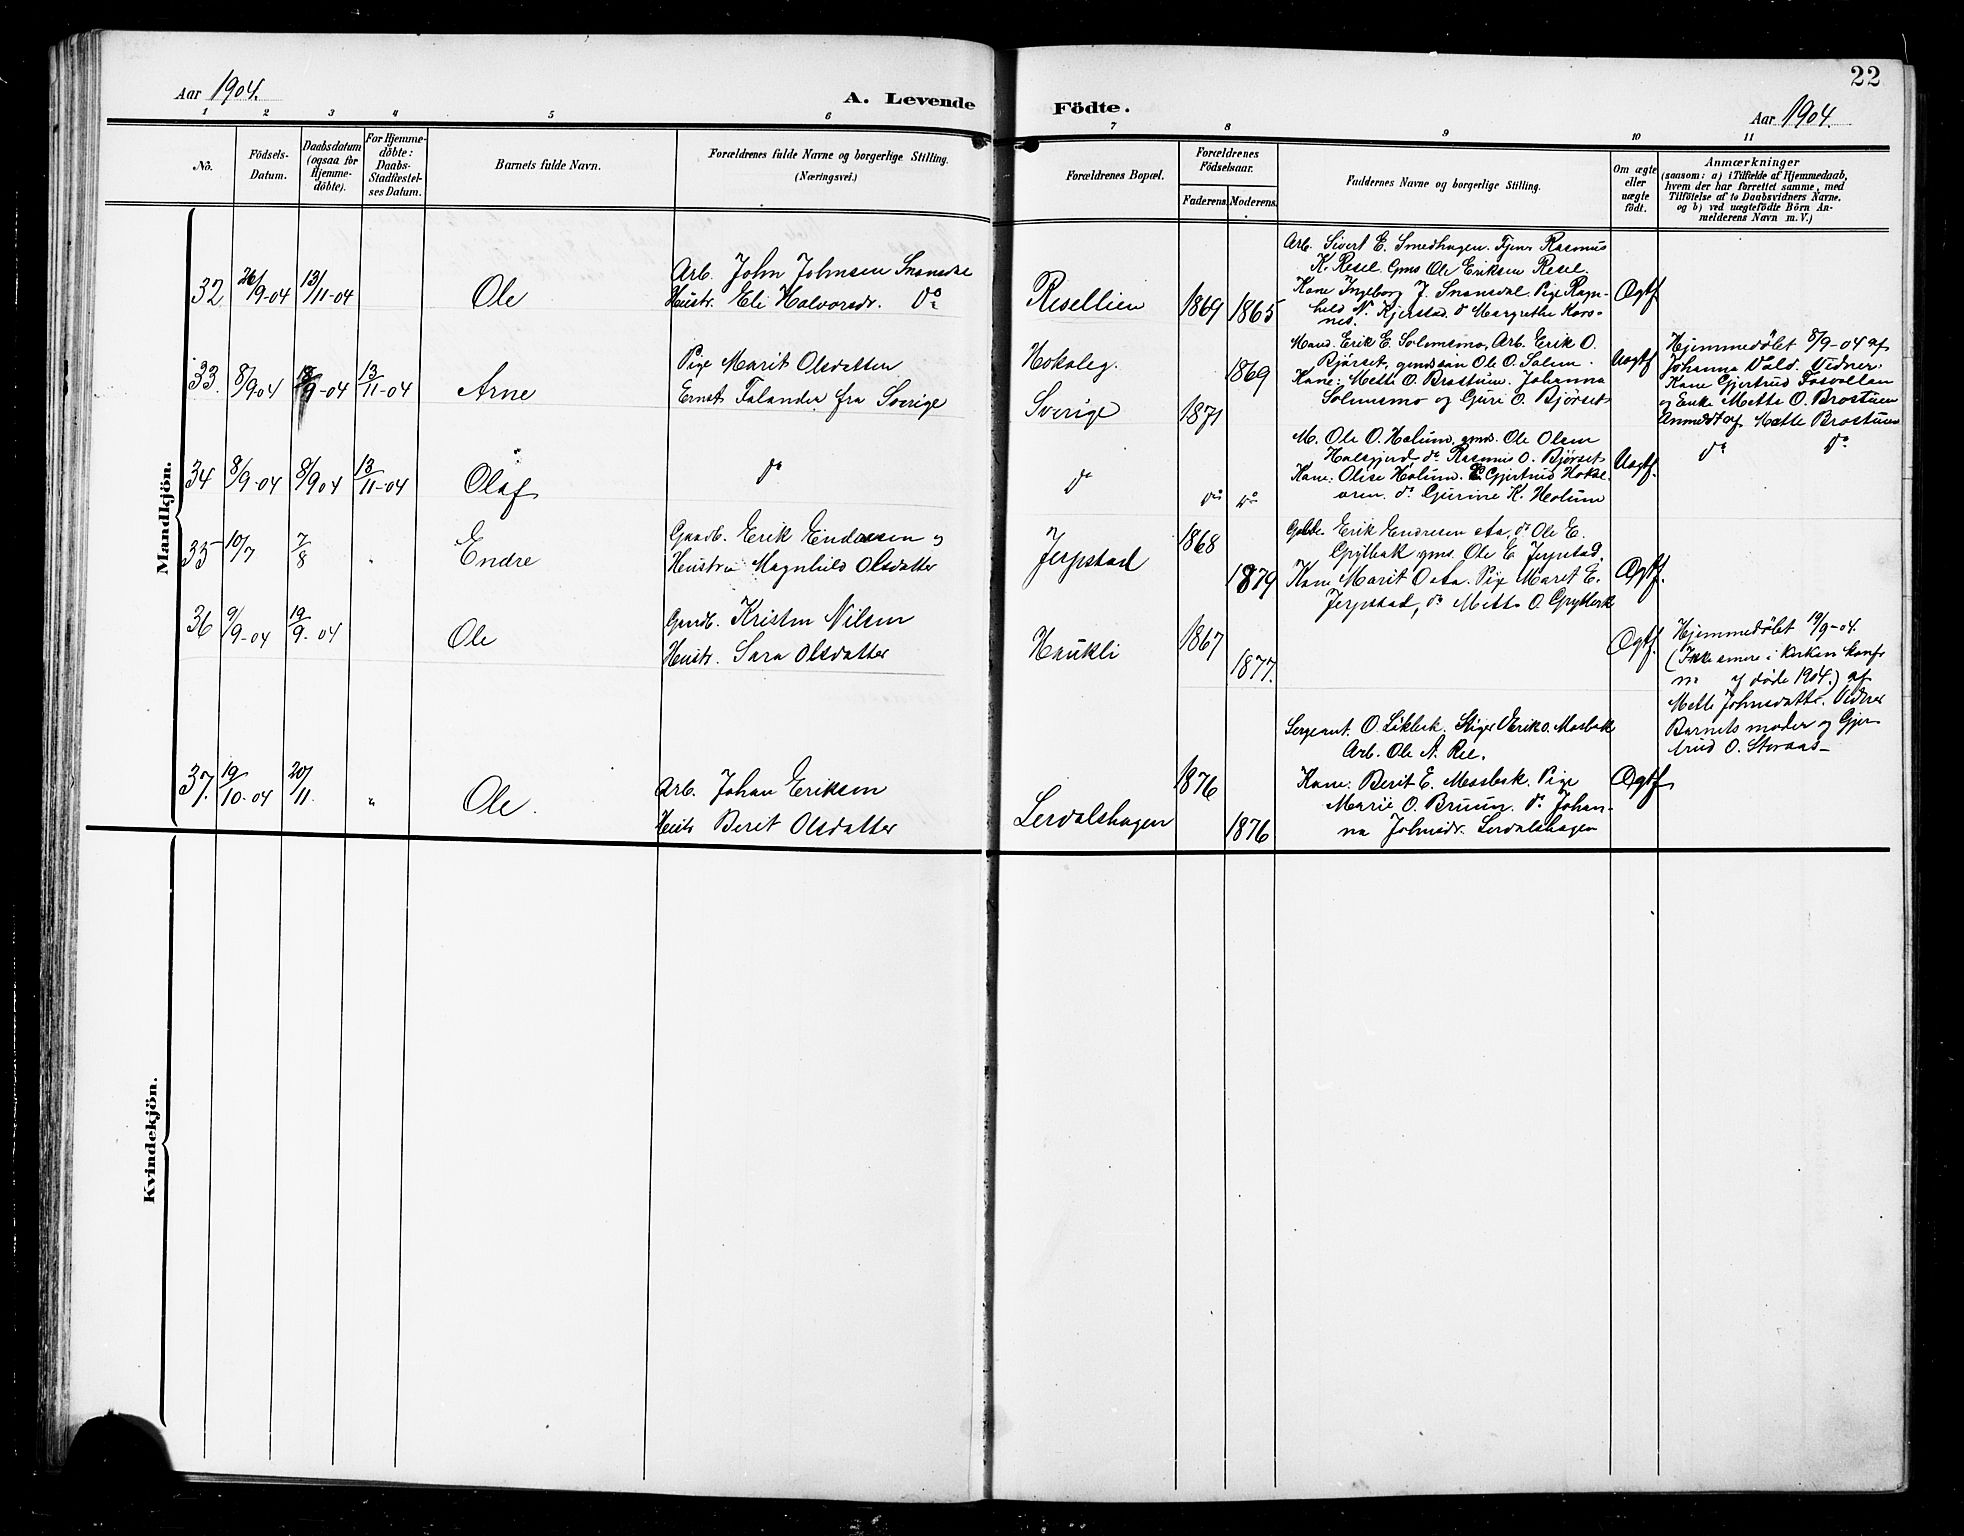 22
Aar 1904.
A. Levende Födte.
Aar 1904.
1 2 3 4 5 6 7 8 9 10 11
No.
Födsels-
Datum.
Daabsdatum
(ogsaa for
Hjemme-
döbte).
For Hjemme-
döbte:
Daabs-
Stadfæstel-
ses Datum.
Barnets fulde Navn.
Forældrenes fulde Navne og borgerlige Stilling.
(Næringsvei.)
Forældrenes Bopæl.
Forældrenes
Födselsaar.
Faderens. Moderens.
Faddernes Navne og borgerlige Stilling.
Om ægte
eller
uægte
födt.
Anmærkninger
(saasom: a) i Tilfælde af Hjemmedaab,
hvem der har forrettet samme, med
Tilföielse af to Daabsvidners Navne.
og b) ved uægtefödte Börn An-
melderens Navn m. V.)
Mandkjön.
32 26/9-04 13/11-04
Ole
Arb. John Johnsen Snonsdal
Hustr. Eli Halvorsdr. do
Resellien
1869 1865
Arb. Sivert E. Smedhagen. Tjener Rasmus
K. Resel. Gms Ole Eriksen Resel.
Kone Ingeborg J. Snonsdal. Pige Ragn-
hild N. Kjerstad. do Margrethe Kors-
nes.
Ægtf
33. 8/9 04 8/9-04 13/11-04
Arne
Pige Marit Olsdatter
Ernst Falander fra Sverige
Hokaleg.
Sverige
1871 1869
Mand. Erik E. Solemsmo, Arb. Erik O.
Bjørset, gmdssøn Ole O. Solem.
Kone: Mette O. Brostuen. Johanna
Solemsmo og Guri O. Bjørset
Uægtf
Hjemmedøbt 8/9-04 af
Johanna Vold. Vidner.
Kone Gjertrud Fosvollan
og Enke Mette O. Brostuen
Anmeldt af Mette Brostuen
34 8/9-04 8/9 04 13/11-04
Olaf
do
do
do do
M. Ole O. Holum. gms. Ole Olsen
Halsgjerd do Rasmus O. Bjørset
Kone: Olise Holum. Gjertrud Hoks-
øren. do Gurine K. Holum
Uægtf.
do do
35 10/7 7/8 "
Endre
Gaardb. Erik Endresen og
Hustru Magnhild Olsdatter
Jerpstad
1868 1879
Gaardbr. Erik Endresen Aa, do Ole E.
Grytbak gms. Ole E. Jerpstad.
Kone Marit O Aa. Pige Maret E.
Jerpstad, do Mette O. Grytbak
Ægtf.
36 9/9-04 19/9-04
Ole
Gaardb. Kristen Nilsen
Hustr. Sara Olsdatter
Haukli
1867 1877.
Ægtf.
Hjemmedøbt 19/9-04.
(Ikke senere i kirken
døde 1904.) af
Mette Johnsdatter. Vidner
Barnets moder og Gjer-
trud O. Storaas
37. 19/10-04 20/11. "
Ole.
Arb. Johan Eriksen
Hustr Berit Olsdatter
Lerdalshagen
1876 1876
Sergeant. O. Likbek. Stiger Erik O. Mosbak
Arb. Ole A. Ree.
Kone: Berit E. Mosbek. Pige
Marie O. Bruun. do Johan-
na Johnsdr. Lerdalshagen
Ægtf
Kvindekjön.